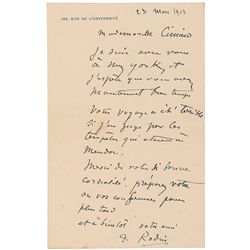 182, RUE DE L'UNIVERSITÉ
23 Mars 1903
Mademoiselle
Je suis avec vous
à New york, et
j'espère que vous avez
maintenant beau temps
Votre voyage a été terrible
si j'en juge par les
tempêtes qui étaient à
Meudon.
Merci de votre si bonne
cordialité, préparez votre
ou vos conférences pour
plus tard
et à bientôt votre ami
A. Rodin